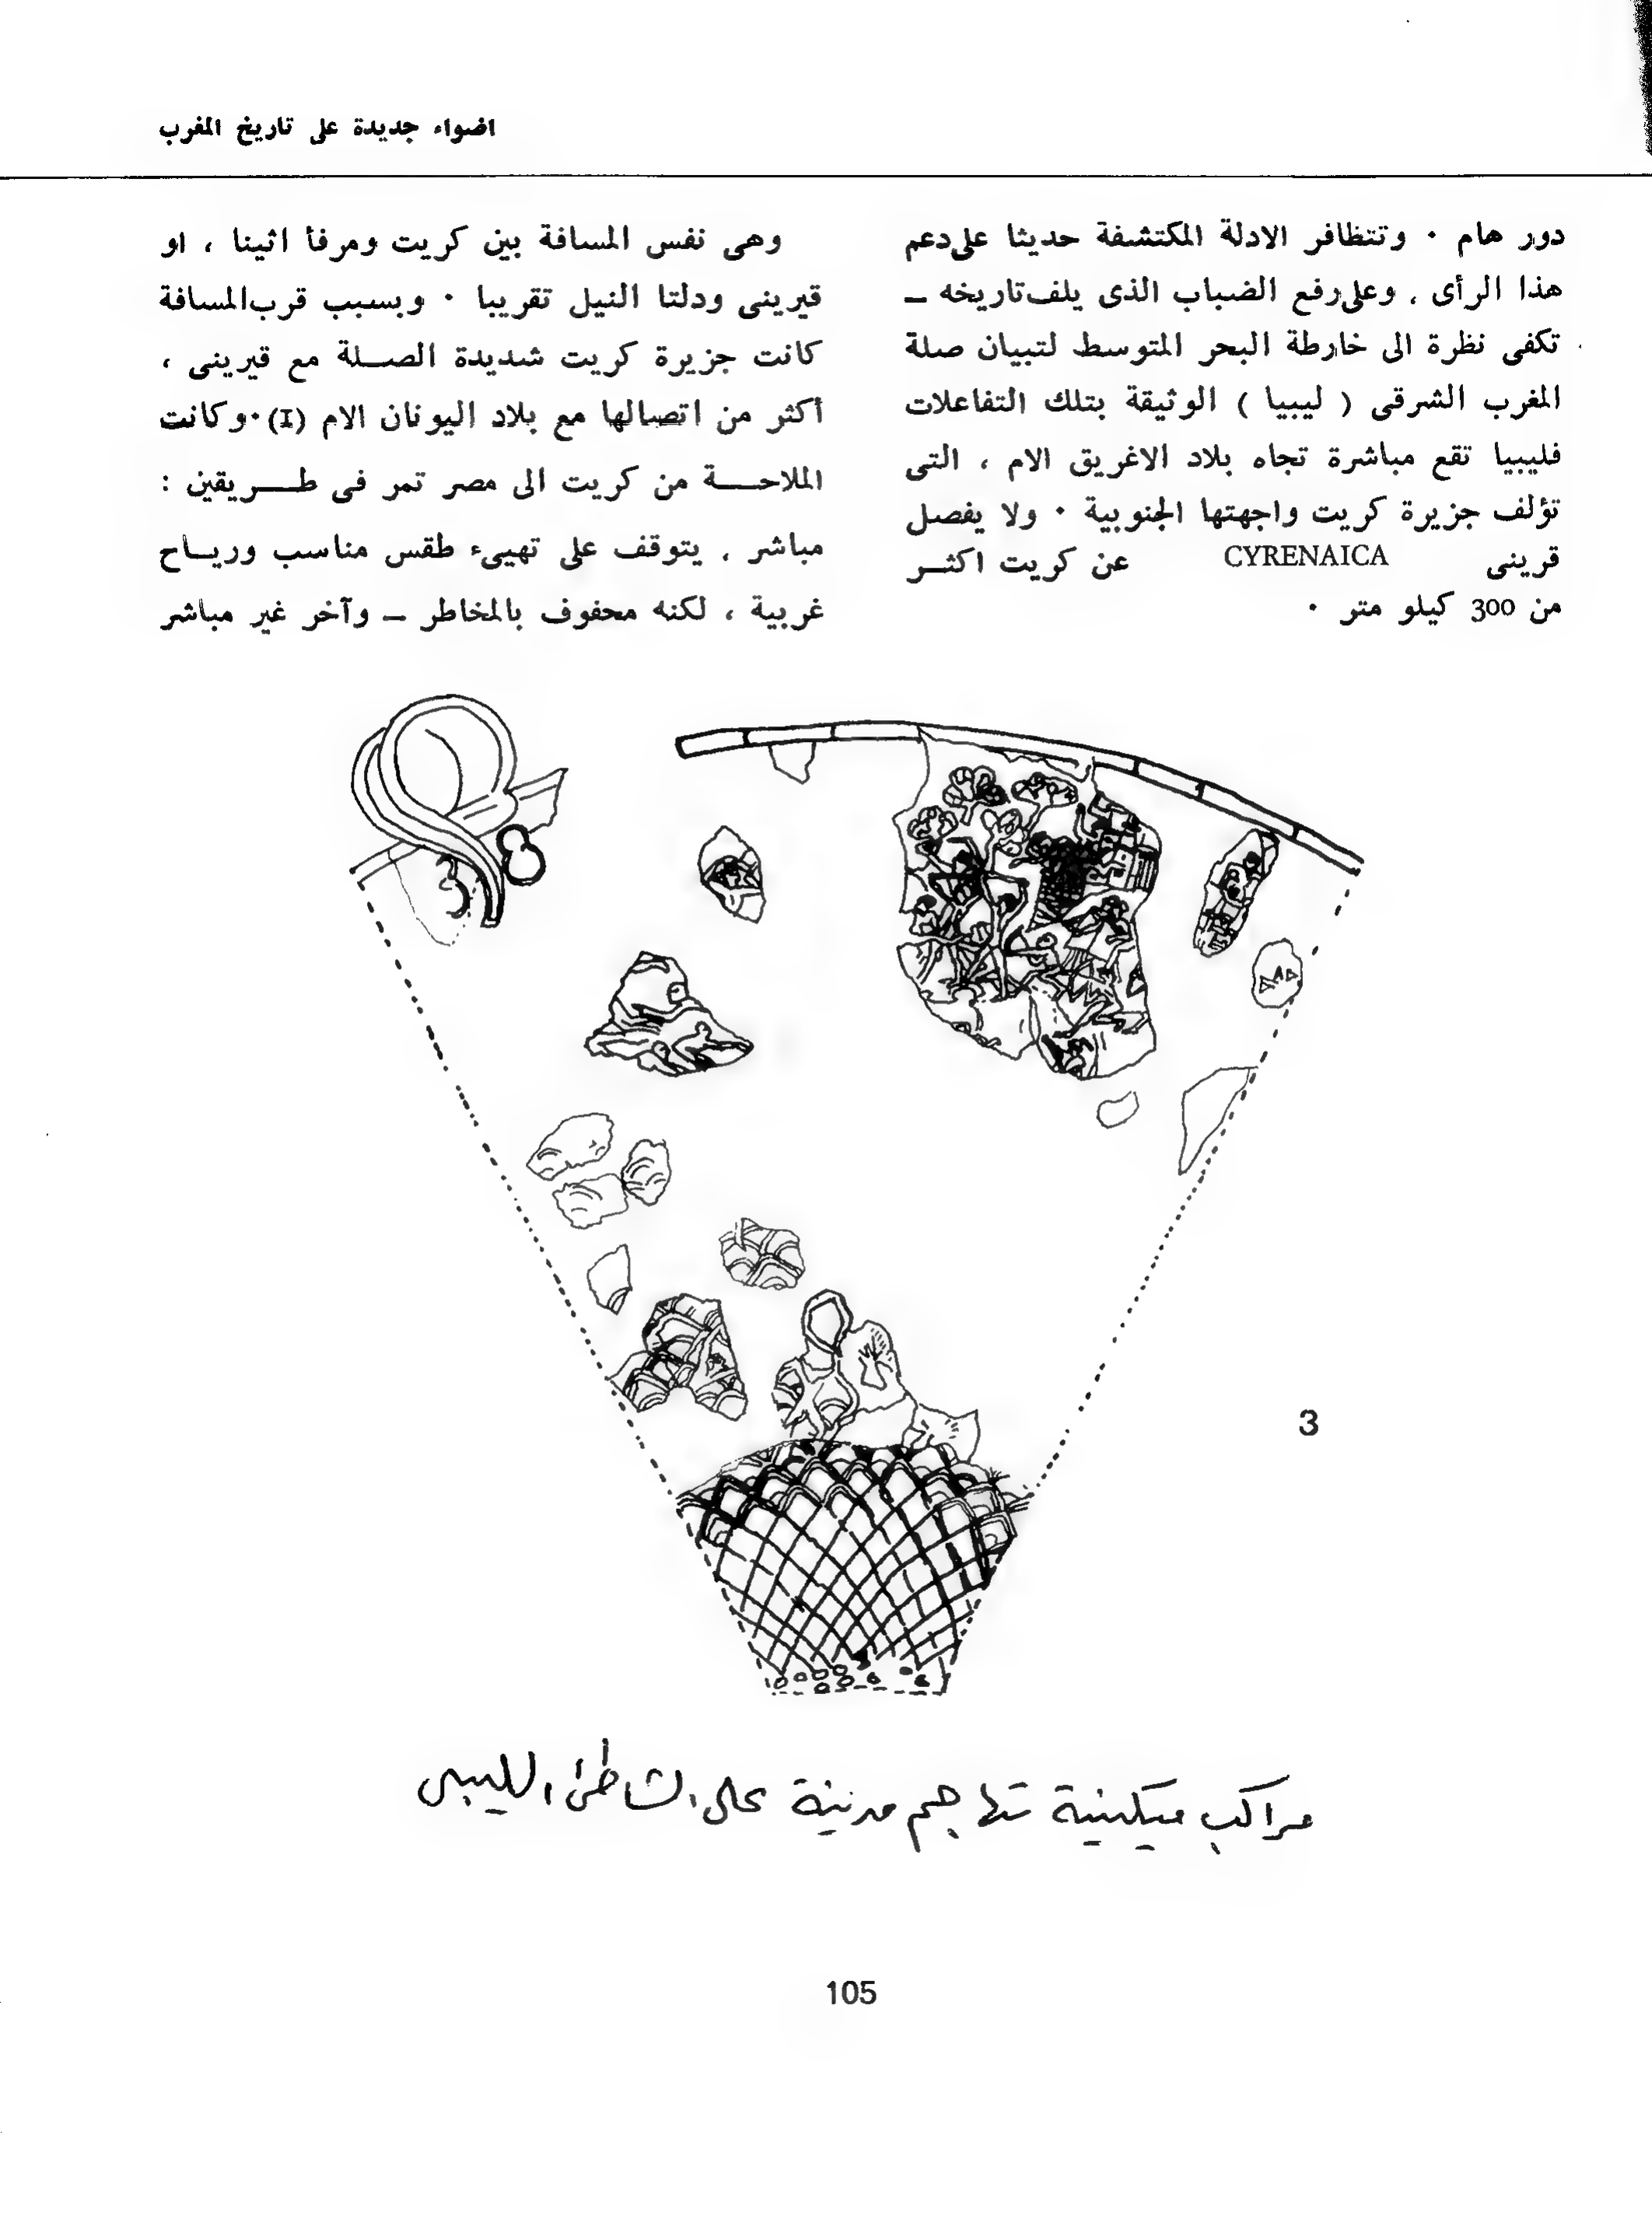 اضواء جديدة على تاريخ المغرب
دور هام · وتتظافر الادلة المكتشفة حديثا على دعم
هذا الرأى ، وعلى رفع الضباب الذى يلف تاريخه –
تكفى نظرة الى خارطة البحر المتوسط لتبيان صلة
المغرب الشرقى ( ليبيا ) الوثيقة بتلك التفاعلات
فليبيا تقع مباشرة تجاه بلاد الاغريق الام ، التى
تؤلف جزيرة كريت واجهتها الجنوبية · ولا يفصل
قرينى CYRENAICA عن كريت اكثــر
من 300 كيلو متر ·
وهى نفس المسافة بين كريت ومرفأ اثينا ، او
قيرينى ودلتا النيل تقريبا · وبسبب قرب المسافة
كانت جزيرة كريت شديدة الصــلة مع قيرينى ،
أكثر من اتصالها مع بلاد اليونان الام (I)· وكانت
الملاحــــة من كريت الى مصر تمر فى طـــريقين :
مباشر ، يتوقف على تهيىء طقس مناسب وريــاح
غربية ، لكنه محفوف بالمخاطر – وآخر غير مباشر
3
مراكب ميكينية تهاجم مدينة على الشاطئ الليبى
105